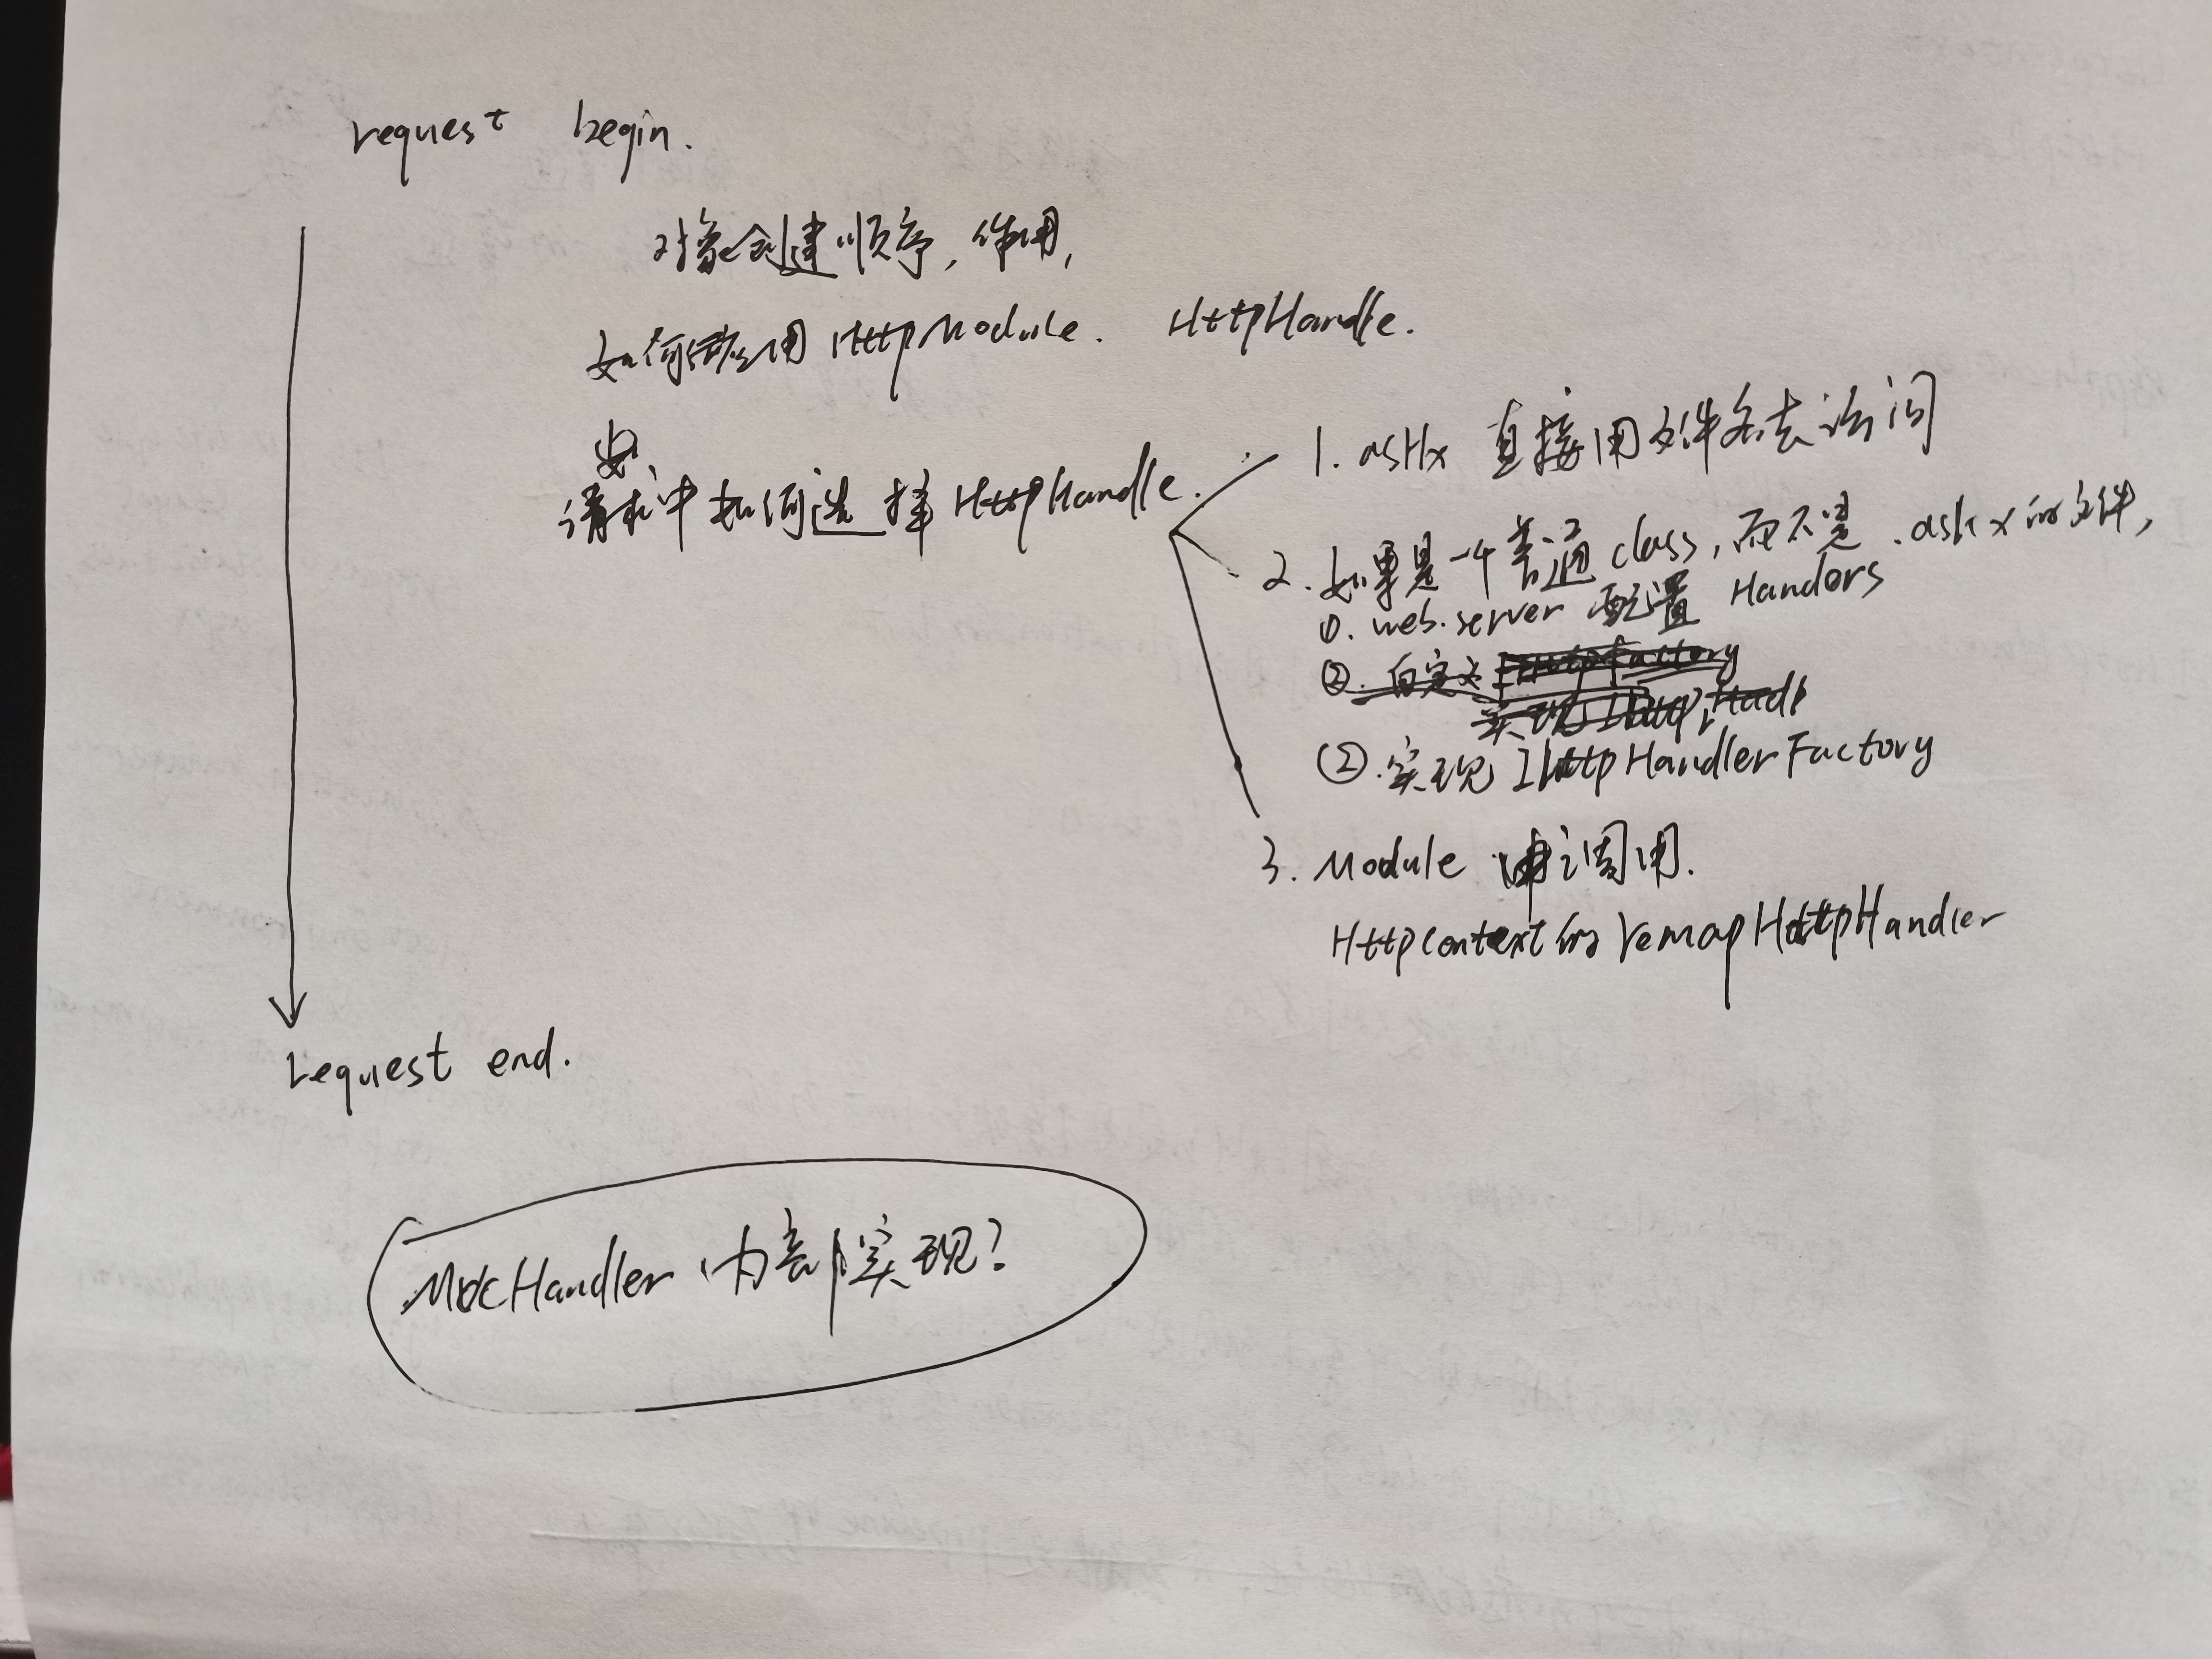 request begin.
对象创建顺序,作用,
如何使用 HttpModule. HttpHandle.
请求中如何选择 HttpHandle.
1. asHx 直接用文件名去访问
2. 如果是一个普通 class,而不是 .ashx 的文件,
①. web.server 配置 Handers
②. 自定义 IHttpFactory
实现 IHttpHandl
②.实现 IHttpHandlerFactory
3. Module 中调用.
Httpcontext 的 remapHttpHandler
request end.
MvcHandler 内部实现?